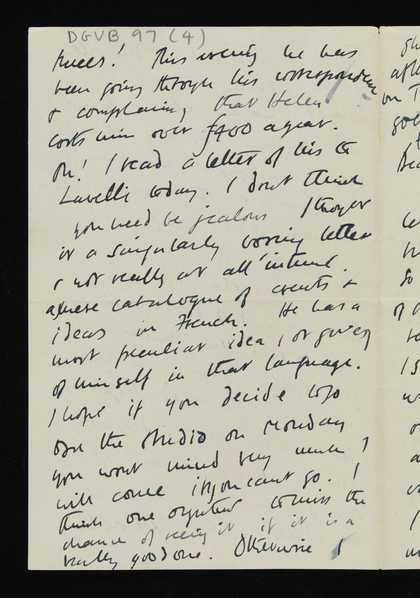 DGVB 97 (4)
knees! This evening he has
been going through his correspondence
& complaining that Helen
costs him over £400 a year.
Oh! I read a letter of his to
Lavelli today. I dont think
you need be jealous I thought
it a singularly boring letter
& not really at all 'intime'.
a mere catalogue of events &
ideas in French. He has a
most peculiar idea, or gives
of himself in that language.
I hope if you decide
the studio on Monday
you wont mind very much, I
will come if you cant go. I
think one to miss the
chance of seeing it if it is a
really good one. Otherwise I